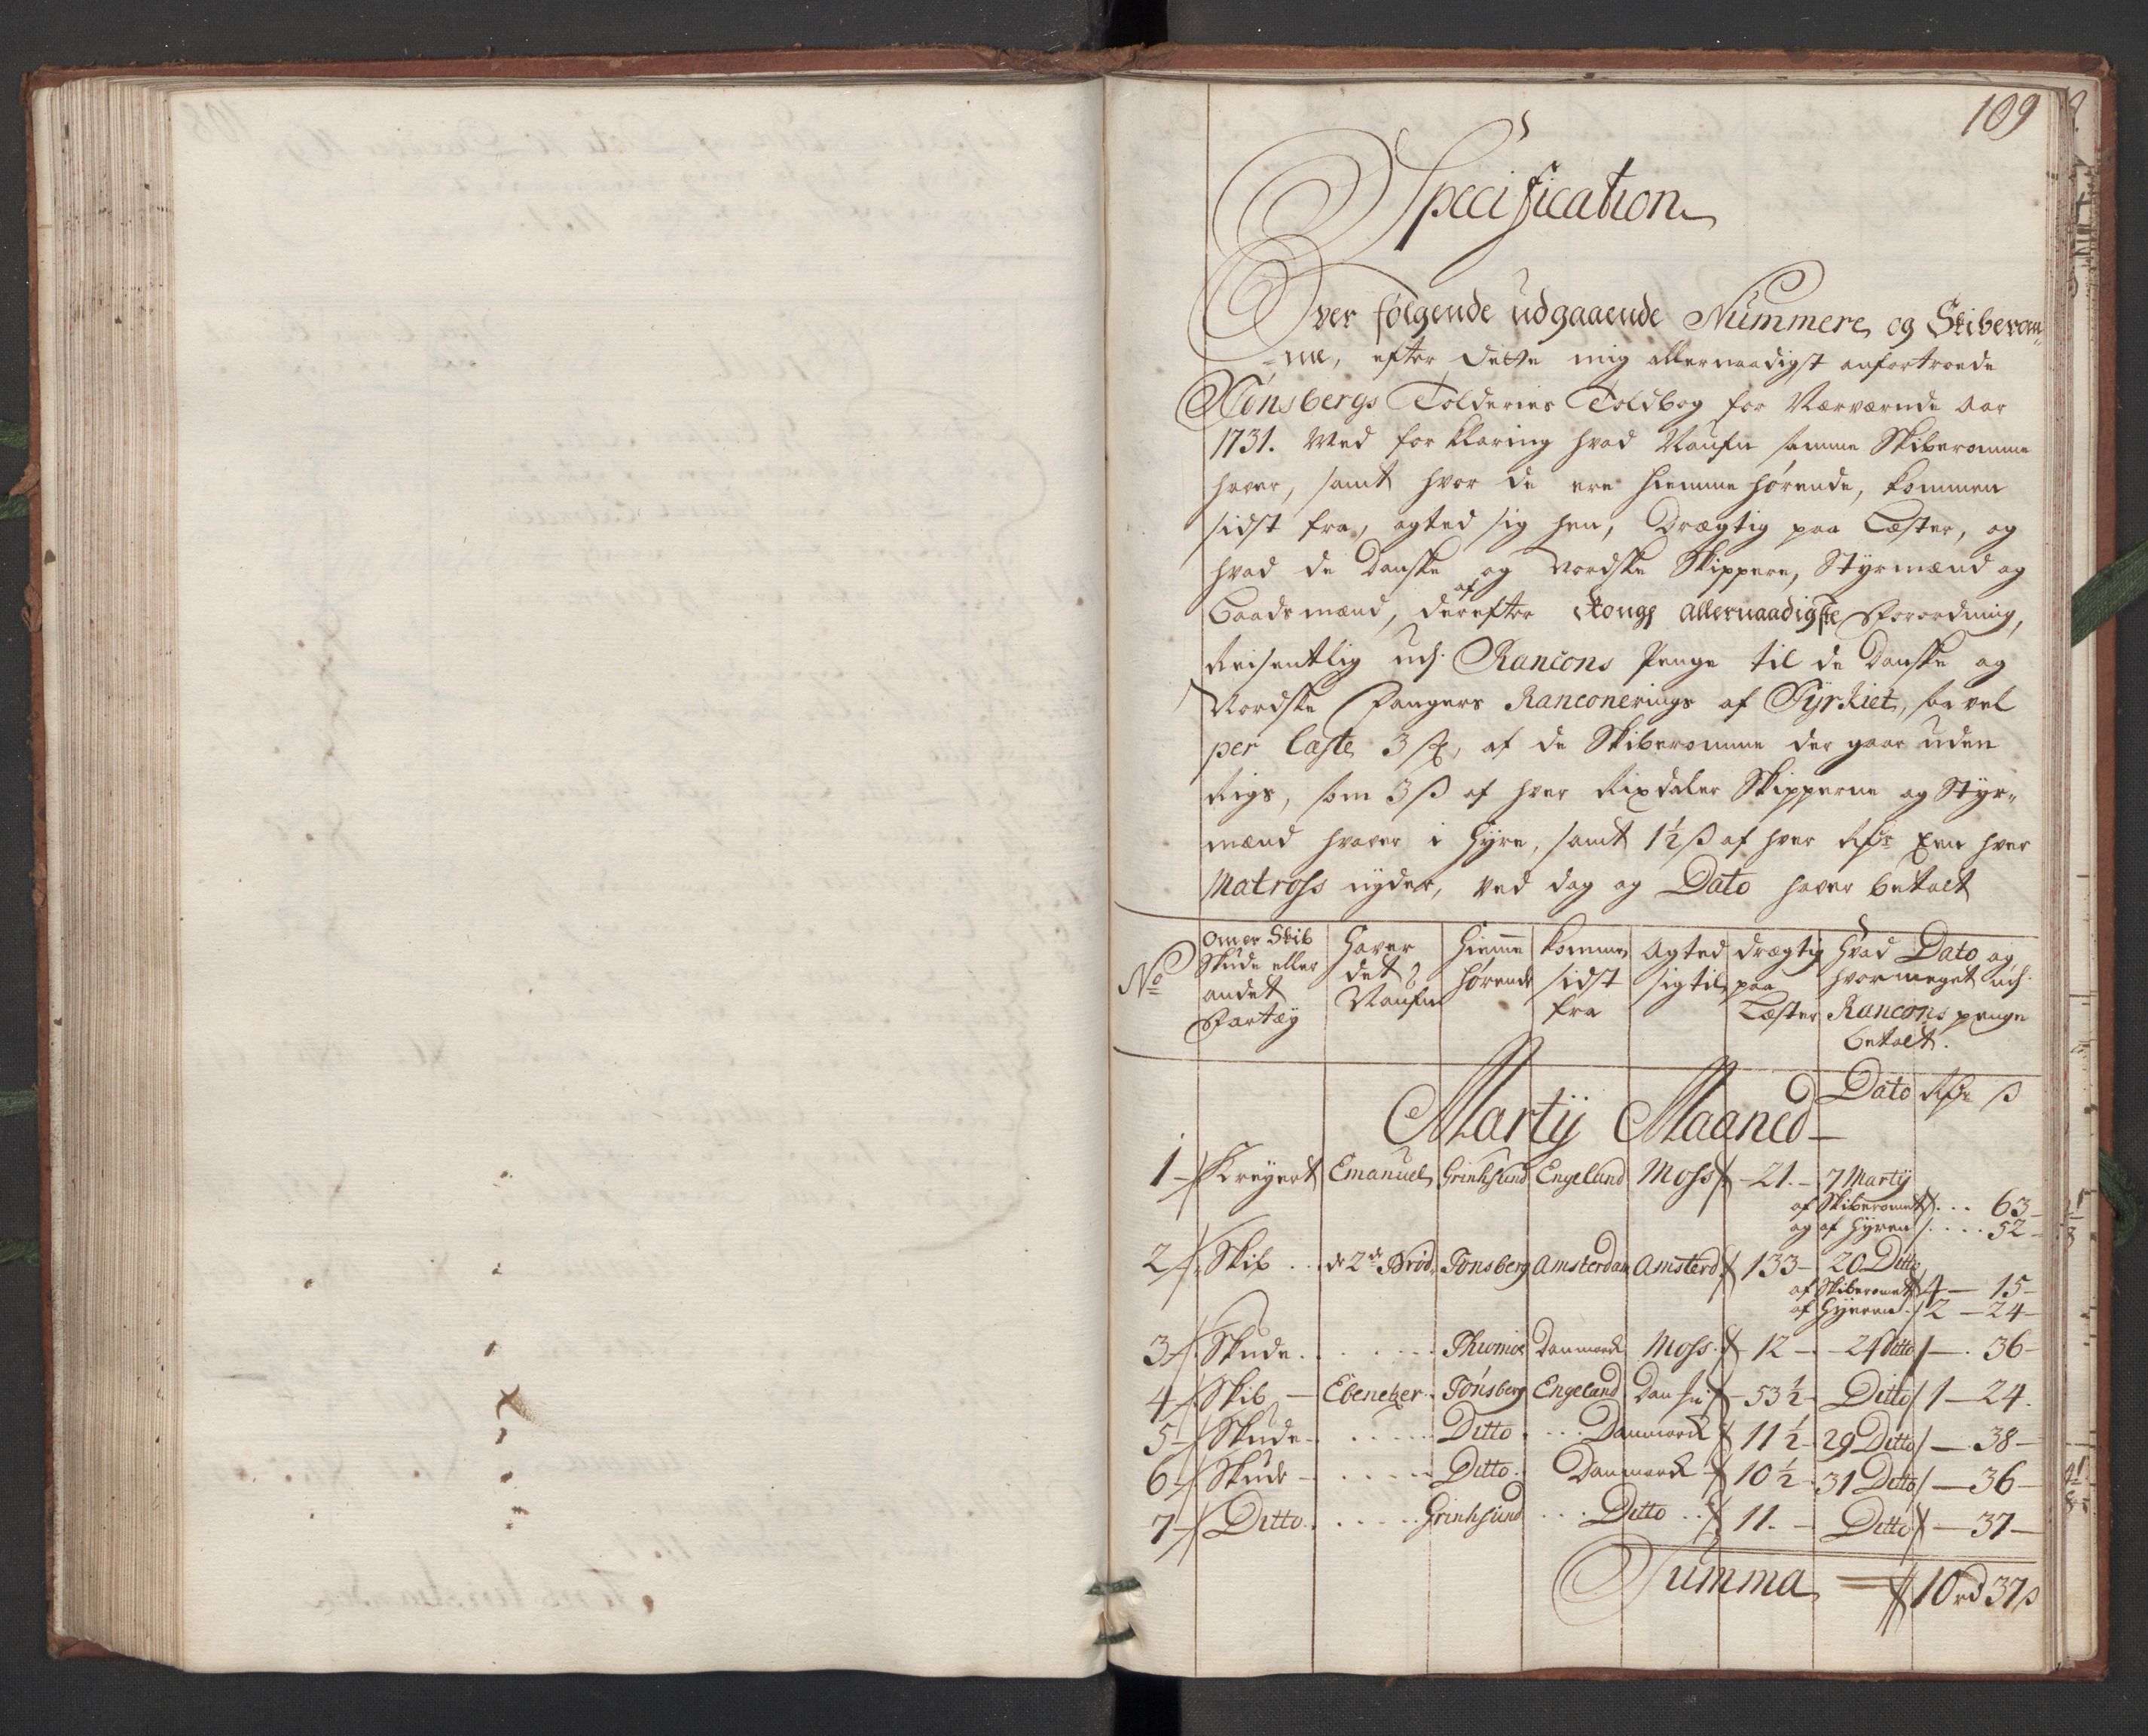 109
Specification
Over følgende udgaaende Nummere og Skiberom„
„me, efter dette mig allernaadigst anfortroede
Tønsbergs Tolderies Toldbog for Nærværende Aar
1731. Med forklaring hvad Naufn samme Skiberomme
haver, samt hvor de ere hiemme hørende, kommen
sidst fra, agted sig hen, Drægtig paa Læster, og
hvad de Danske og Nordske Skippere, Styrmænd og
Baadsmænd, derefter af Kongl allernaadigste Forordning,
udj. Rancons Penge til de Danske og
Nordske Fangers Ranconerings af Tyrkiet, saa vel
per Læste 3 ß, af de Skiberomme der gaar uden
Rigs, som 3 ß af hver Rixdaler Skipperne og Styr„
mænd hvaver i Hyre, samt 1½ ß af hver Rdr hver
Matross nyder, ved dag og Dato haver betalt
No | Om er Skib Skude eller andet Fartøy | Haver det Naufn | Hiemme hørende | kommen sidst fra | Agted sig til | drægtig paa Læster | Hvad Dato og hvormeget udj. Rancons penge betalt.
Dato Rdr ß
Martij Maaned
1 Kreyert Emanuel Grinhsund Engeland Moss 21. 7 Martij
af Skiberomet . . . 63
og af Hyren . . . . 52
2 Skib . . de 2de Brød. Tonsberg Amsterdam Amsterd 133 20 Ditto
af Skiberomet 4 — 15
af Hyeren 2 — 24
3 Skude . . . . Danmark Moss. 12 24 Ditto — 36
4 Skib — Ebenetzer Tønsberg Engeland 53½ Ditto 1 — 24.
5 Skude . . . . Ditto . . . Danmark 11½ 29 Ditto — 38
6 Skude . . . . Ditto . Danmark 10½ 31 Ditto — 36
7 Ditto . . . . Grinhsund . . . Ditto . . 11. Ditto — 37
Summa 10 rd 37 ß